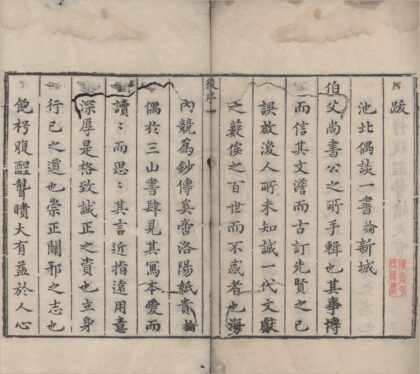 跋
池北偶談一書掄新城
伯父尚書公之所手輯也其事博
而信其文澹而古訂先賢之已
誤啟後人所未知誠一代文獻
之藪俟之百世而不惑者也海
後序一
內競為鈔傳奚啻洛陽紙貴掄
偶於三山書肆見其寫本愛而
讀〻而思〻其言近指遠用意
深厚是格致誠正之資也立身
行己之道也崇正闢邪之志也
飽枵腹醒聾聵大有益於人心